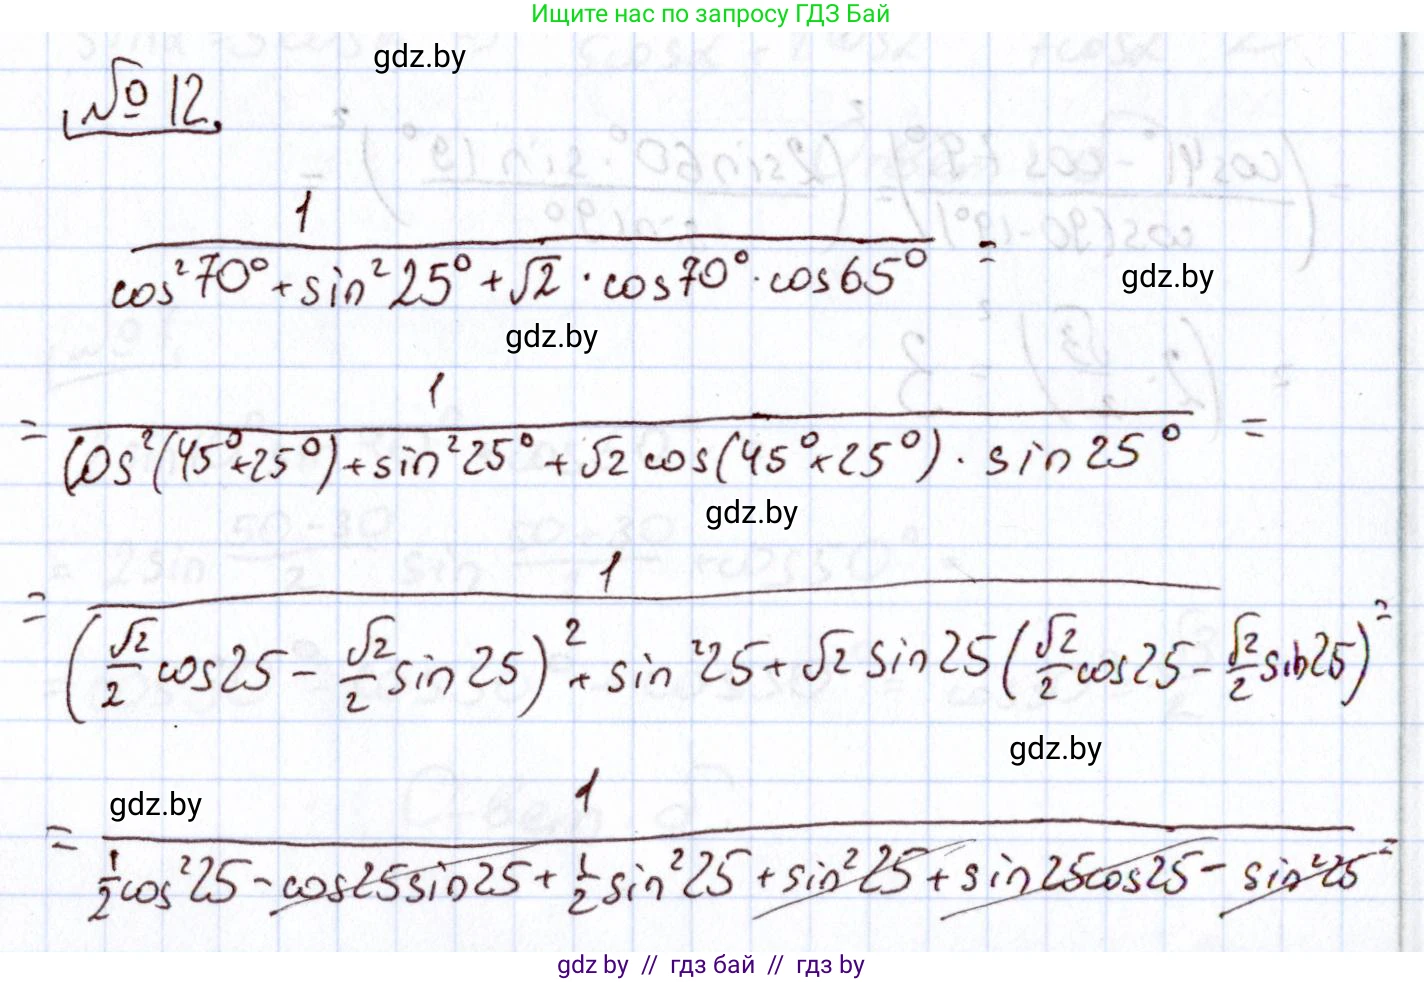 Ищите нас по запросу ГДЗ Бай
gdz.by
№ 12.
1
cos²70° + sin²25° + √2 · cos70° · cos65° =
gdz.by
gdz.by
1
= cos²(45°+25°) + sin²25° + √2 cos(45°+25°) · sin25° =
gdz.by
1
= (√2/2 cos25 - √2/2 sin25)² + sin²25 + √2 sin25 (√2/2 cos25 - √2/2 sin25) =
gdz.by
gdz.by
1
= 1/2 cos²25 - cos25sin25 + 1/2 sin²25 + sin²25 + sin25cos25 - sin²25 =
gdz by // гдз бай // гдз by